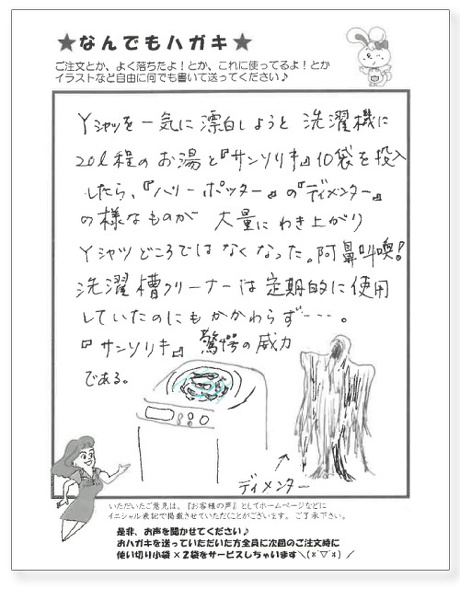 ★なんでもハガキ★
ご注文とか、よく落ちたよ！とか、これに使ってるよ！とか
イラストなど自由に何でも書いて送ってください♪
Yシャツを一気に漂白しようと 洗濯機に
20l程のお湯と『サンソリキ』10袋を投入
したら、『ハリーポッター』の『ディメンター』
の様なものが 大量にわき上がり
Yシャツどころではなくなった。阿鼻叫喚！
洗濯槽クリーナーは定期的に使用
していたのにもかかわらず…。
『サンソリキ』驚愕の威力
である。
ディメンター
いただいたご意見は、『お客様の声』としてホームページなどに
イニシャル表記で掲載させていただくことがございます。ご了承下さい。
是非、お声を聞かせてください♪
おハガキを送っていただいた方全員に次回のご注文時に
使い切り小袋×2袋をサービスしちゃいます＼(*´▽`*)／